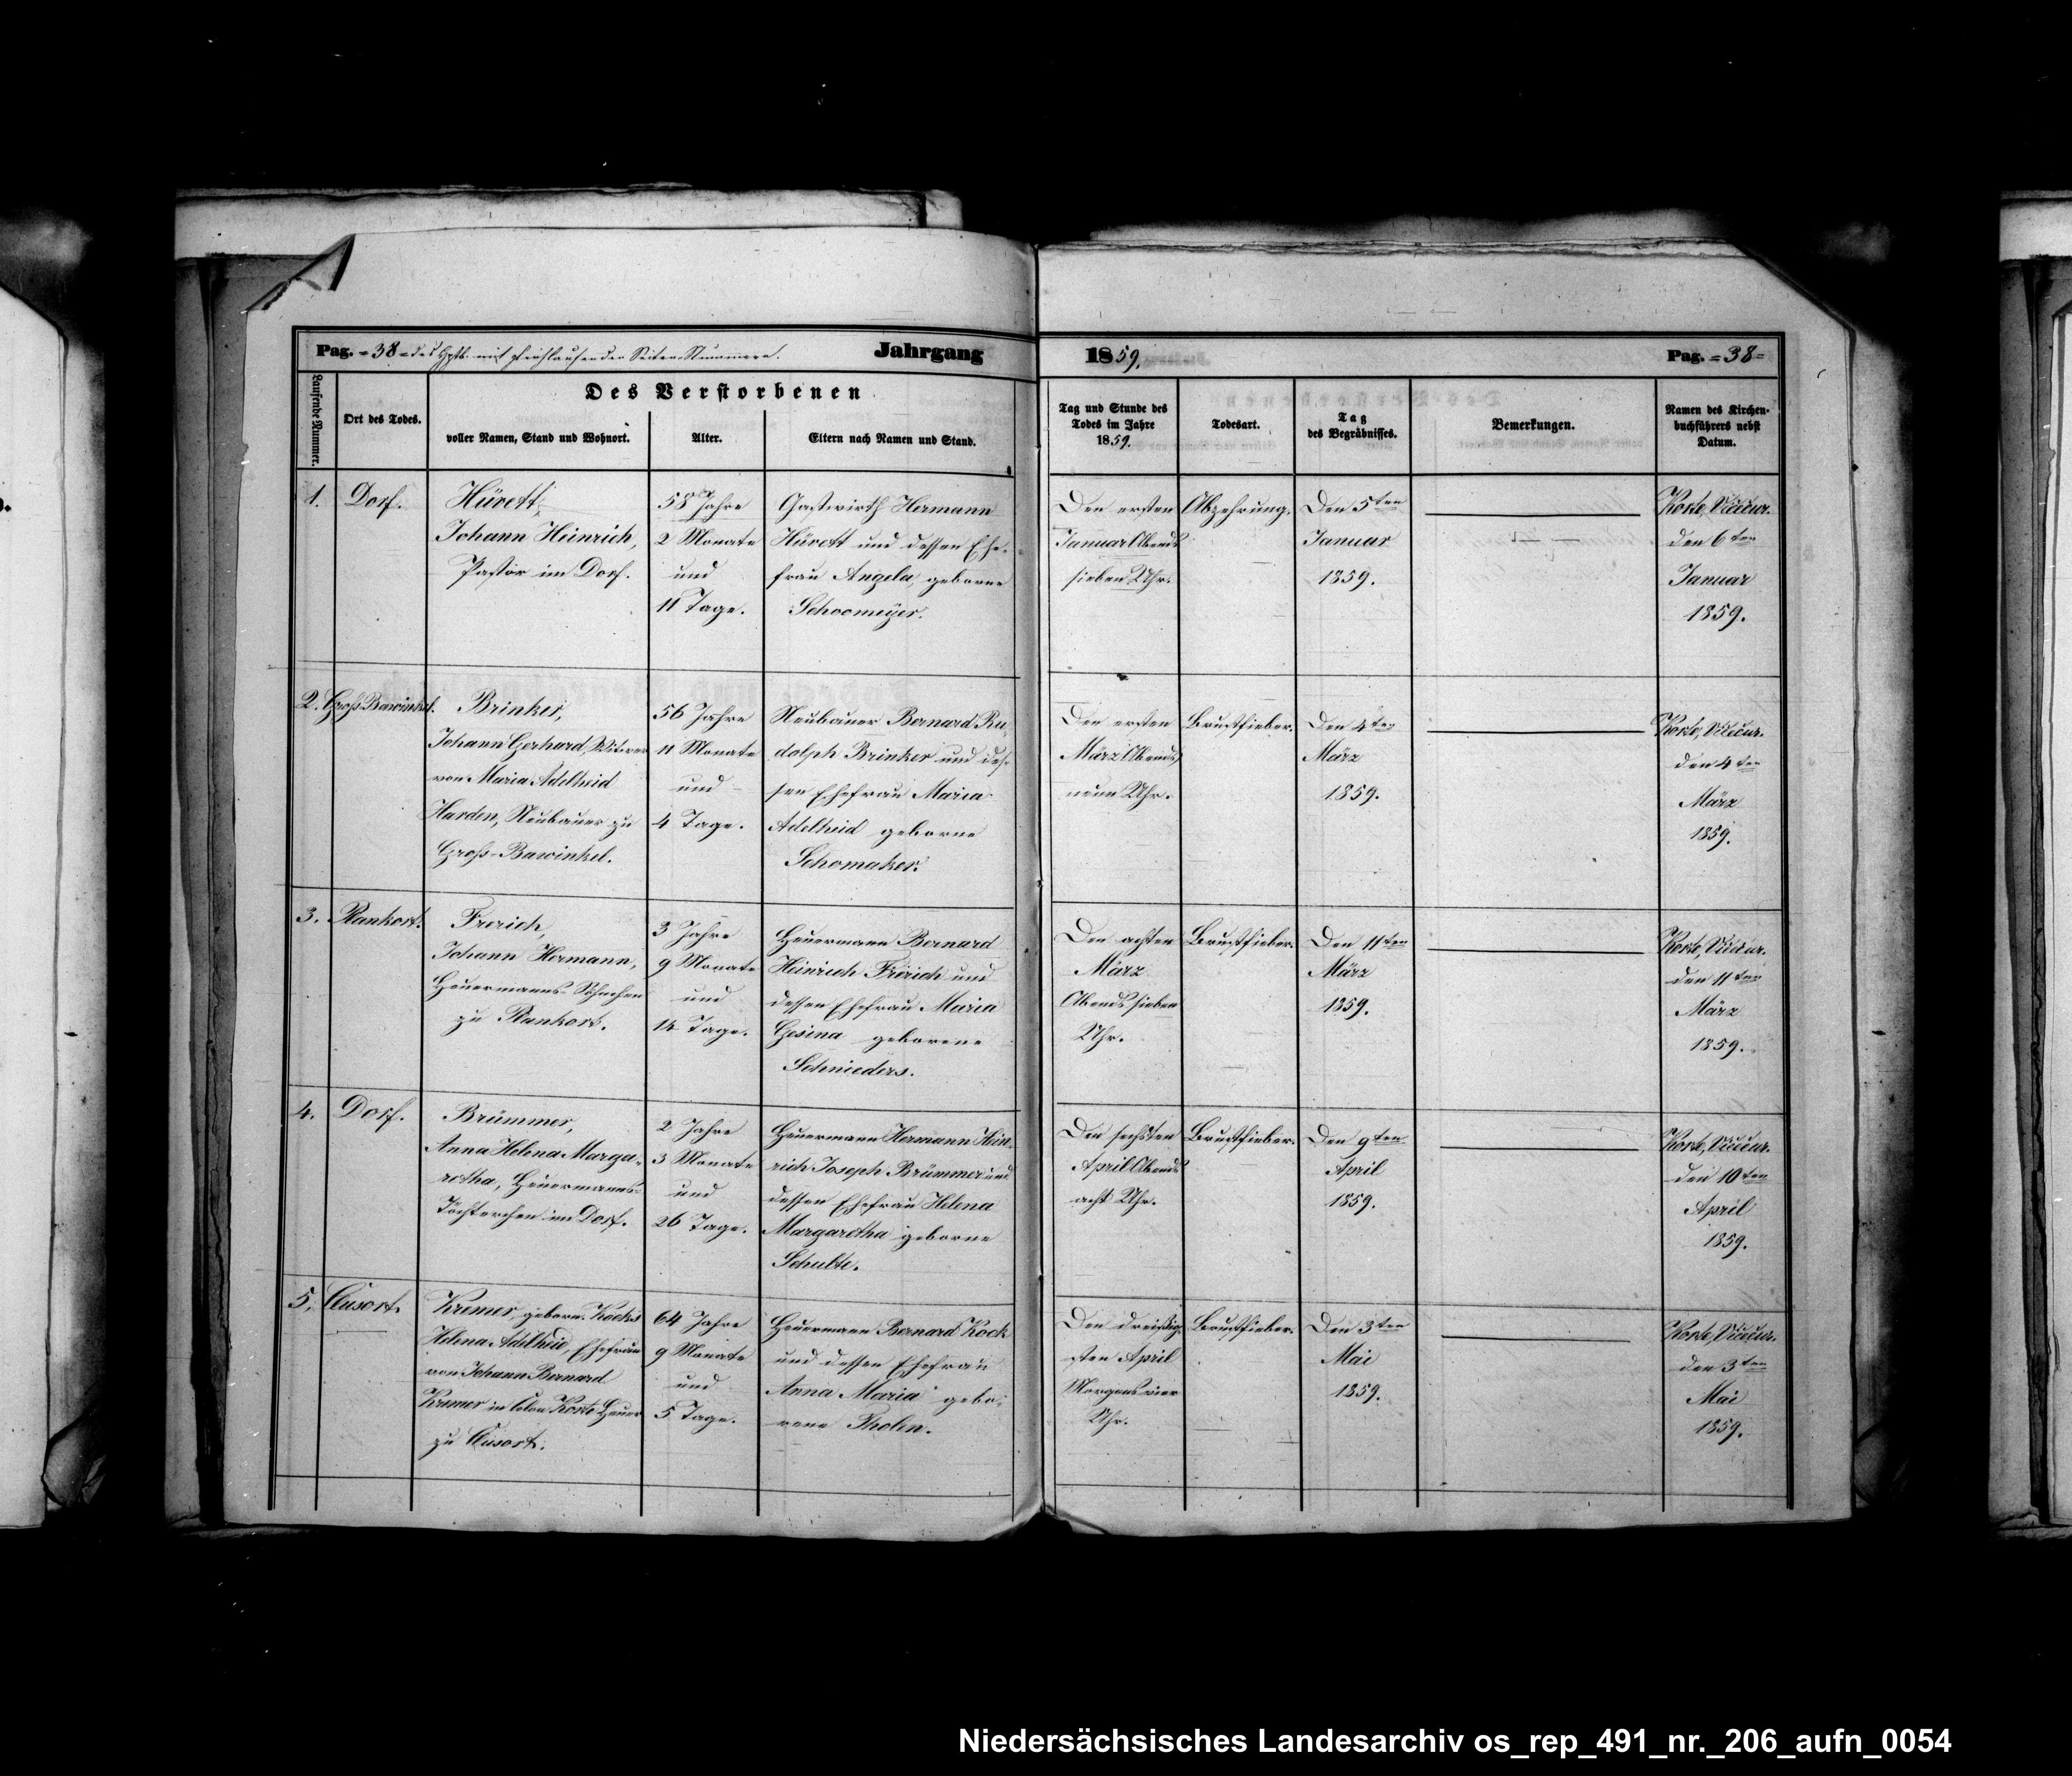 Pag. =38= des Hptb. mit gleichlaufenden Seiten-Nummern. Jahrgang 1859. Pag. =38=
Des Verstorbenen
Laufende Nummer.
Ort des Todes.
voller Namen, Stand und Wohnort.
Alter.
Eltern nach Namen und Stand.
Tag und Stunde des
Todes im Jahre
1859.
Todesart.
Tag
des Begräbnisses.
Bemerkungen.
Namen des Kirchen-
buchführers nebst
Datum.
1.
Dorf.
Hüvett,
Johann Heinrich,
Pastor im Dorf.
58 Jahre
2 Monate
und
11 Tage.
Gastwirth Hermann
Hüvett und dessen Ehe-
frau Angela, geborne
Schoomeÿer.
Den ersten
Januar Abends
sieben Uhr.
Abzehrung.
Den 5ten
Januar
1859.
Korte, Vicecur.
den 6ten
Januar
1859.
2.
Groß-Bawinkel.
Brinker,
Johann Gerhard, Witwer
von Maria Adelheid
Harden, Neubauer zu
Groß-Bawinkel.
56 Jahre
11 Monate
und
4 Tage.
Neubauer Bernard Ru-
dolph Brinker und des-
sen Ehefrau Maria
Adelheid geborne
Schomaker.
Den ersten
März Abends
neun Uhr.
Brustfieber.
Den 4ten
März
1859.
Korte, Vicecur.
den 4ten
März
1859.
3.
Plankort.
Frerich,
Johann Hermann,
Heuermanns-Söhnchen
zu Plankort.
3 Jahre
9 Monate
und
14 Tage.
Heuermann Bernard
Heinrich Frerich und
dessen Ehefrau Maria
Gesina geborene
Schnieders.
Den achten
März
Abends sieben
Uhr.
Brustfieber.
Den 11ten
März
1859.
Korte, Vicecur.
den 11ten
März
1859.
4.
Dorf.
Brümmer,
Anna Helena Marga-
retha, Heuermanns-
Töchterchen im Dorf.
2 Jahre
3 Monate
und
26 Tage.
Heuermann Hermann Hein-
rich Joseph Brümmer und
dessen Ehefrau Helena
Margaretha geborne
Schulte.
Den sechsten
April Abends
acht Uhr.
Brustfieber.
Den 9ten
April
1859.
Korte, Vicecur.
den 10ten
April
1859.
5.
Clusort.
Kremer, geborn. Kock,
Helena Adelheid, Ehefrau
von Johann Bernard
Kremer in Colon Korte Heuer
zu Clusort.
64 Jahre
9 Monate
und
5 Tage.
Heuermann Bernard Kock
und dessen Ehefrau
Anna Maria gebo-
rene Tholen.
Den dreißig-
sten April
Morgens vier
Uhr.
Brustfieber.
Den 3ten
Mai
1859.
Korte, Vicecur.
den 3ten
Mai
1859.
Niedersächsisches Landesarchiv os_rep_491_nr._206_aufn_0054